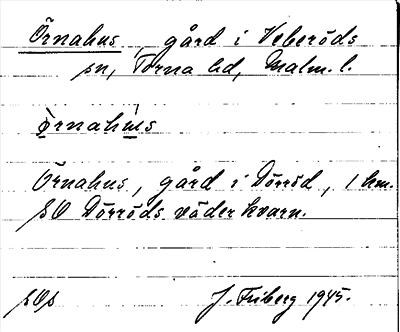 Örnahus, gård i Veberöds
sn, Torna hd, Malm. l.
örnahus
Örnahus, gård i Dörröd, 1 km.
SO Dörröds väderkvarn.
J. Friberg 1945.